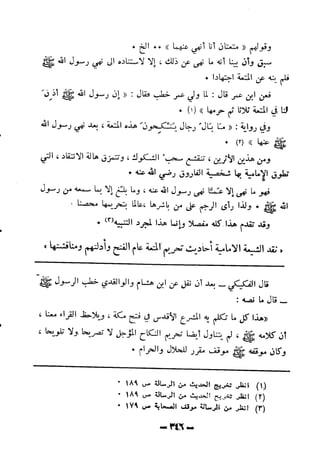 وقولهم « متعتان أنا أنهي عنهما » ٠٠ الخ ٠
سبق وأن بينا أنه ما نهى عن ذلك ، إلا لاستناده الى نهي رسول الله ﷺ
فلم ينه عن المتعة اجتهادا ٠
فعن ابن عمر قال : لما ولي عمر خطب فقال : « إن رسول الله ﷺ أذن
لنا في المتعة ثلاثا ثم حرمها » (١) ٠
وفي رواية : « ما بال رجال ينكحون هذه المتعة ، بعد نهي رسول الله
ﷺ عنها » (٢) ٠
ومن هذين الأثرين ، تنقشع سحب الشكوك ، وتتمزق هالة الانتقاد ، التي
تطوق الإمامية بها شخصية الفاروق رضي الله عنه ٠
فهو ما نهى إلا عما نهى رسول الله عنه ، وما بلغ إلا بما سمعه من رسول
الله ﷺ ٠ ولذا رأى الرجم على من باشرها ، عالما بتحريمها محصنا ٠
وقد تقدم هذا كله مفصلا وإنما هذا لمجرد التنبيه(٣) ٠
• نقد الشيعة الامامية أحاديث تحريم المتعة عام الفتح وأدلتهم ومناقشتها •
قال الفكيكي ــ بعد أن نقل عن ابن هشام والواقدي خطب الرسول ﷺ
ــ قال ما نصه :
«هذا كل ما تكلم به المشرع الأقدس في فتح مكة ، ويلاحظ القراء معنا ،
أن كلامه ﷺ ، لم يتناول أيضا تحريم النكاح المؤجل لا تصريحا ولا تلويحا ،
وكان موقفه ﷺ موقف مقرر للحلال والحرام ٠
(١) انظر تخريج الحديث من الرسالة ص ١٨٩ ٠
(٢) انظر تخريج الحديث من الرسالة ص ١٨٩ ٠
(٣) انظر من الرسالة موقف الصحابة ص ١٧٩ ٠
— ٣٤٦ —